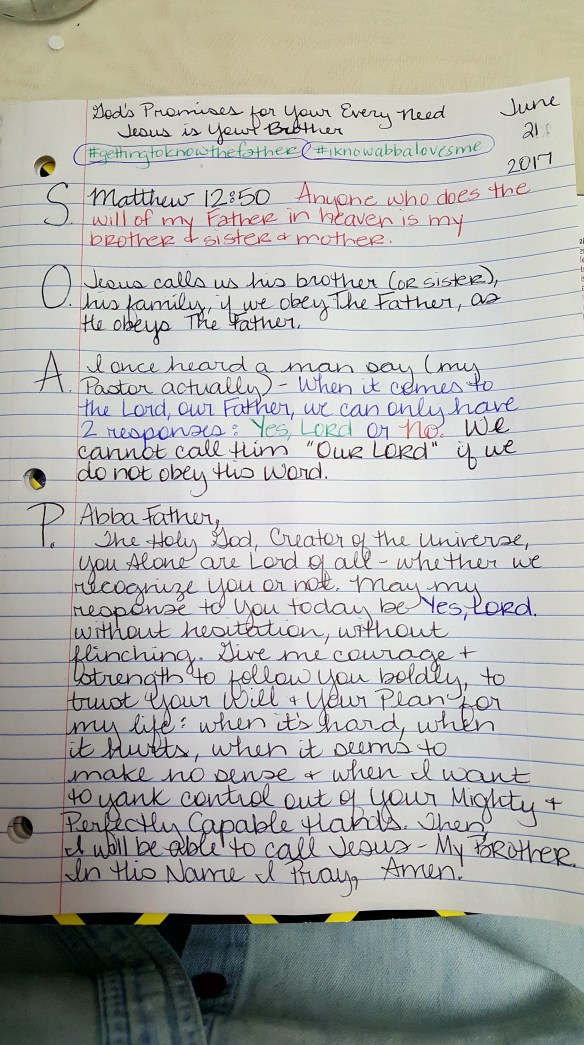 God's Promises for Your Every Need
Jesus is Your Brother
June
21
2017
#gettingtoknowthefather #iknowabbalovesme
S. Matthew 12:50 Anyone who does the
will of my Father in heaven is my
brother & sister & mother.
O. Jesus calls us his brother (or sister),
his family, if we obey The Father, as
He obeys The Father.
A. I once heard a man say (my
Pastor actually) - When it comes to
the Lord, our Father, we can only have
2 responses: Yes, Lord or No. We
cannot call Him "OUR LORD" if we
do not obey His Word.
P. Abba Father,
The Holy God, Creator of the Universe,
You Alone are Lord of all - whether we
recognize You or not. May my
response to You today be Yes, Lord.
without hesitation, without
flinching. Give me courage +
strength to follow You boldly, to
trust Your Will + Your Plan for
my life: when it's hard, when
it hurts, when it seems to
make no sense + when I want
to yank control out of Your Mighty +
Perfectly Capable Hands. Then,
I will be able to call Jesus - My BROTHER.
In His Name I Pray, Amen.